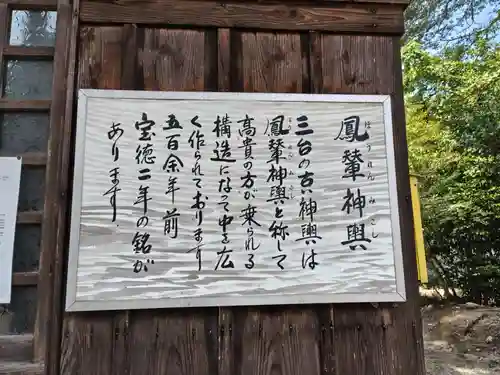 鳳輦神輿
ほうれんみこし
三台の古い神輿は
鳳輦神輿と称して
高貴の方が乗られる
構造になって中を広
く作られております
五百余年前
宝徳二年の銘が
あります